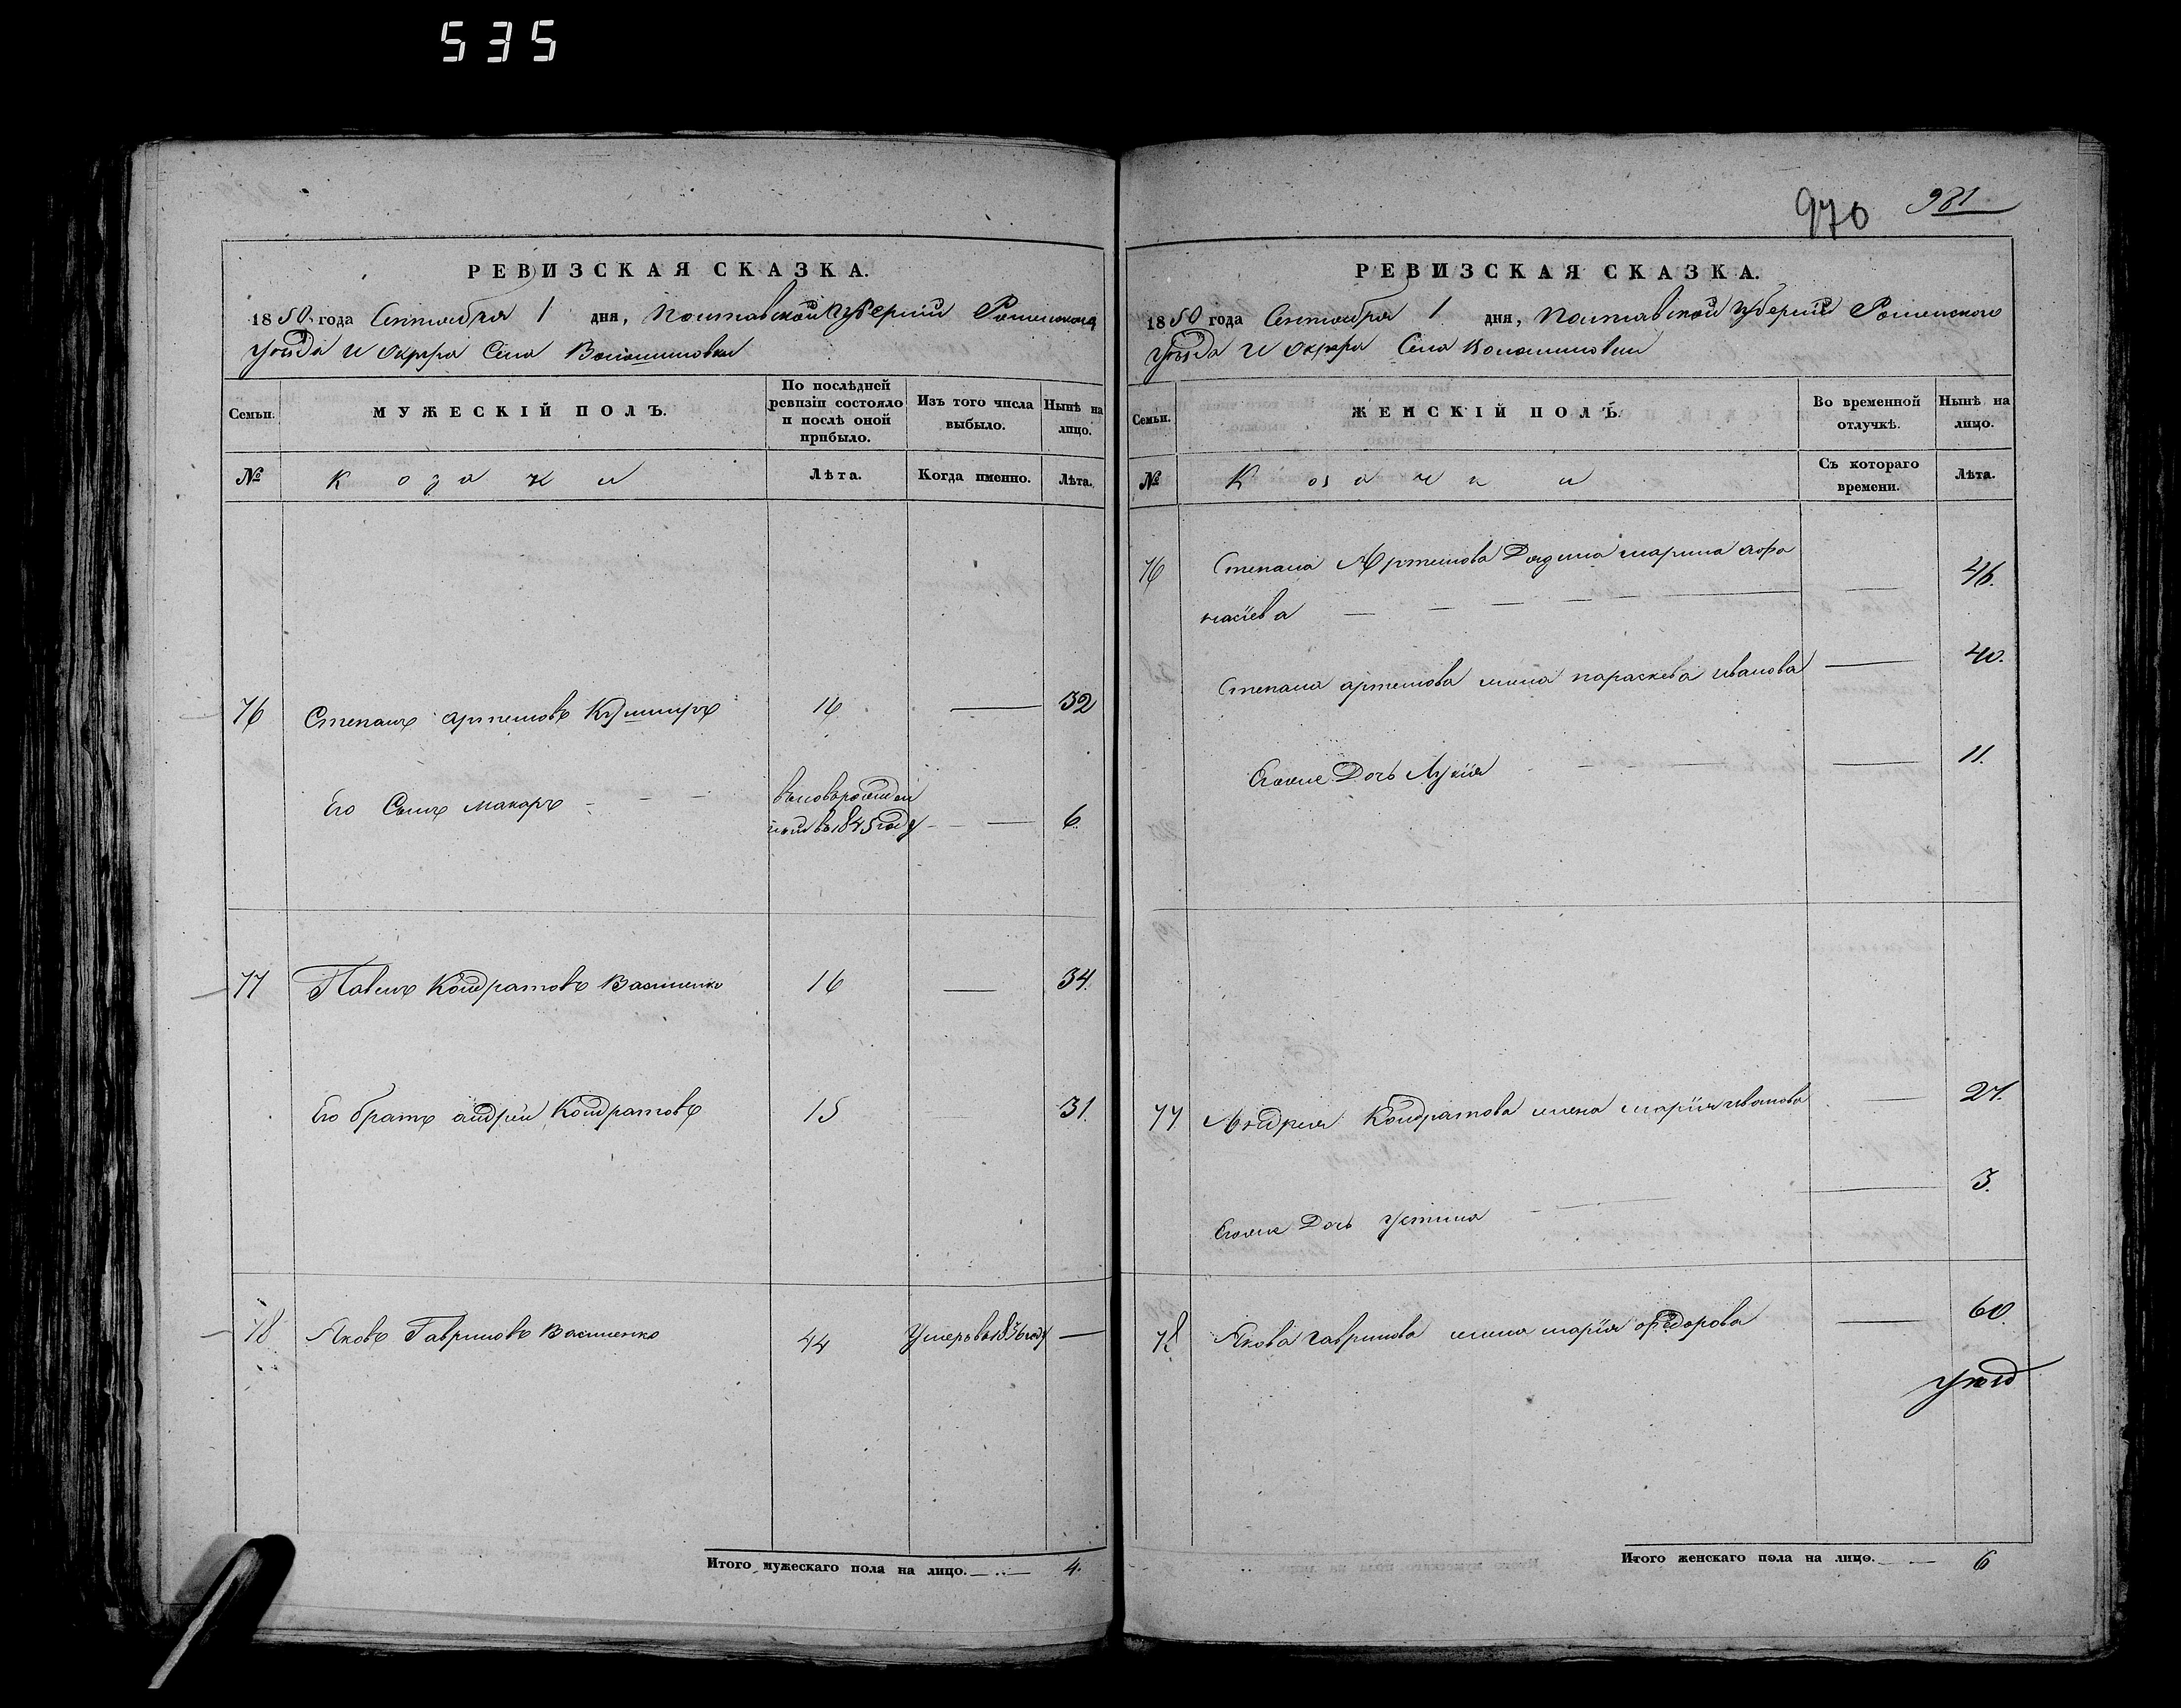 535
РЕВИЗСКАЯ СКАЗКА.
1850 года Сентября 1 дня, Полтавской губернии Роменского
уезда и округа Села Волошиновки
Семьи.
МУЖЕСКІЙ ПОЛЪ.
По послѣдней
ревизіи состояло
и послѣ оной
прибыло.
Изъ того числа
выбыло.
Нынѣ на
лицо.
№
Козаки
Лѣта.
Когда именно.
Лѣта.
76 Степанъ Артемовъ Кушниръ 16 — 32
Его Сынъ Макаръ - - - вновьрожден
ный въ 1845 году - — 6.
77 Павелъ Кондратовъ Василенко 16 — 34.
Его братъ андрей Кондратовъ 15 31.
78 Яковъ Гавриловъ Василенко 44 Умеръ въ 1836 году —
Итого мужескаго пола на лицо. 4.
970 981
РЕВИЗСКАЯ СКАЗКА.
1850 года Сентября 1 дня, Полтавской губернии Роменского
уезда и округа Села Волошиновки
Семьи.
ЖЕНСКІЙ ПОЛЪ.
Во временной
отлучкѣ.
Нынѣ на
лицо.
№
Козачки
Съ котораго
времени.
Лѣта.
76 Степана Артемова марина афа
насіева — — — — — 46.
Степана артемова жена параскева иванова — 40.
Егоже Дочь Лукія — 11.
77 Андрея Кондратова жена марія иванова — 27.
Егоже Дочь устина — 3.
78 Якова гаврилова жена марія федорова — 60.
Итого женскаго пола на лицо. 6